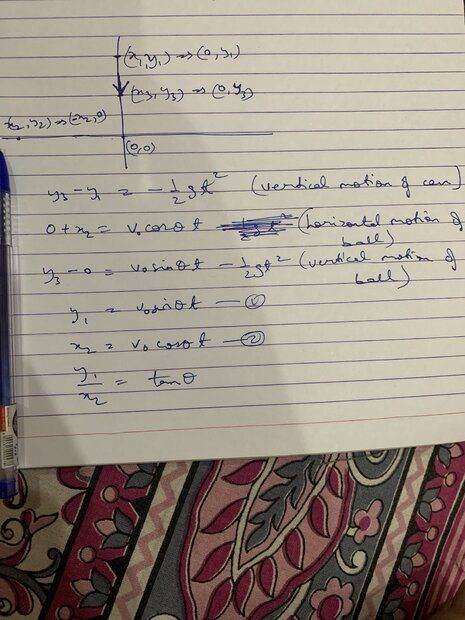 (x₁, y₁) ⇒ (0, y₁)
(x₃, y₃) ⇒ (0, y₃)
(x₂, y₂) ⇒ (-x₂, 0)
(0,0)
y₃ - y₁ = -½gt² (vertical motion of can)
0 + x₂ = v₀cosθt (horizontal motion of ball)
y₃ - 0 = v₀sinθt - ½gt² (vertical motion of ball)
y₁ = v₀sinθt — ①
x₂ = v₀cosθt — ②
y₁/x₂ = tanθ